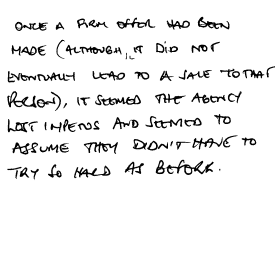 ONCE A FIRM OFFER HAD BEEN
MADE (ALTHOUGH, IT DID NOT
EVENTUALLY LEAD TO A SALE TO THAT
PERSON), IT SEEMED THE AGENCY
LOST IMPETUS AND SEEMED TO
ASSUME THEY DIDN'T HAVE TO
TRY SO HARD AS BEFORE.